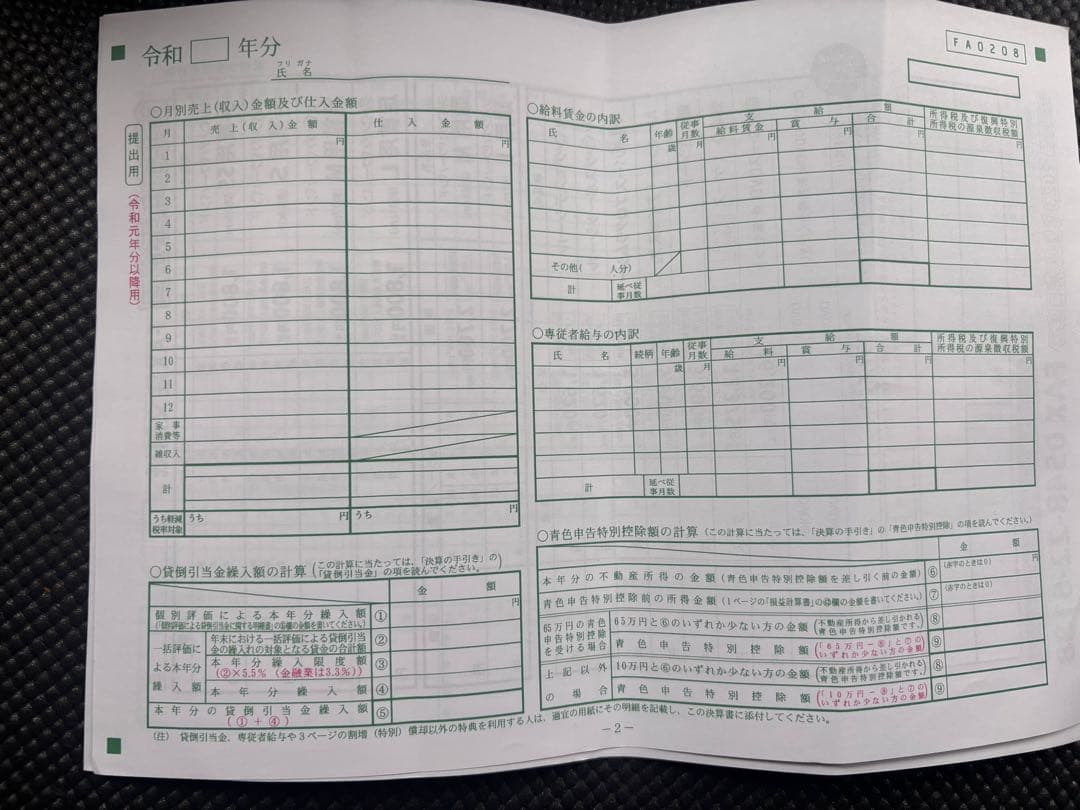 令和 年分
フリガナ
氏名
FA0208
提出用
(令和元年分以降用)
○月別売上(収入)金額及び仕入金額
月 売上(収入)金額 仕入金額
円 円
1
2
3
4
5
6
7
8
9
10
11
12
家事
消費等
雑収入
計
うち軽減
税率対象 うち 円 うち 円
○給料賃金の内訳
氏名 年齢 従事月数 支給額 所得税及び復興特別所得税の源泉徴収税額
給料賃金 賞与 合計
歳 月 円 円 円 円
その他( 人分)
計 延べ従事月数
○専従者給与の内訳
氏名 続柄 年齢 従事月数 支給額 所得税及び復興特別所得税の源泉徴収税額
給料 賞与 合計
歳 月 円 円 円 円
計 延べ従事月数
○貸倒引当金繰入額の計算 (この計算に当たっては、「決算の手引き」の「貸倒引当金」の項を読んでください。)
金額
個別評価による本年分繰入額 ① 円
一括評価による本年分繰入額
年末における一括評価による貸倒引当金の繰入れの対象となる貸金の合計額 ②
本年分繰入限度額 ③
(②×5.5%(金融業は3.3%))
本年分繰入額 ④
本年分の貸倒引当金繰入額 ⑤
(①+④)
○青色申告特別控除額の計算 (この計算に当たっては、「決算の手引き」の「青色申告特別控除」の項を読んでください。)
金額
本年分の不動産所得の金額(青色申告特別控除額を差し引く前の金額) ⑥ (赤字のときは0) 円
青色申告特別控除前の所得金額(1ページの「損益計算書」の㊸欄の金額を書いてください。) ⑦ (赤字のときは0)
65万円の青色申告特別控除を受ける場合
65万円と⑥のいずれか少ない方の金額 (不動産所得から差し引かれる青色申告特別控除額です。) ⑧
青色申告特別控除額 (「65万円-⑧」と⑦のいずれか少ない方の金額) ⑨
上記以外の場合
10万円と⑥のいずれか少ない方の金額 (不動産所得から差し引かれる青色申告特別控除額です。) ⑧
青色申告特別控除額 (「10万円-⑧」と⑦のいずれか少ない方の金額) ⑨
(注) 貸倒引当金、専従者給与や3ページの割増(特別)償却以外の特典を利用する人は、適宜の用紙にその明細を記載し、この決算書に添付してください。
-2-